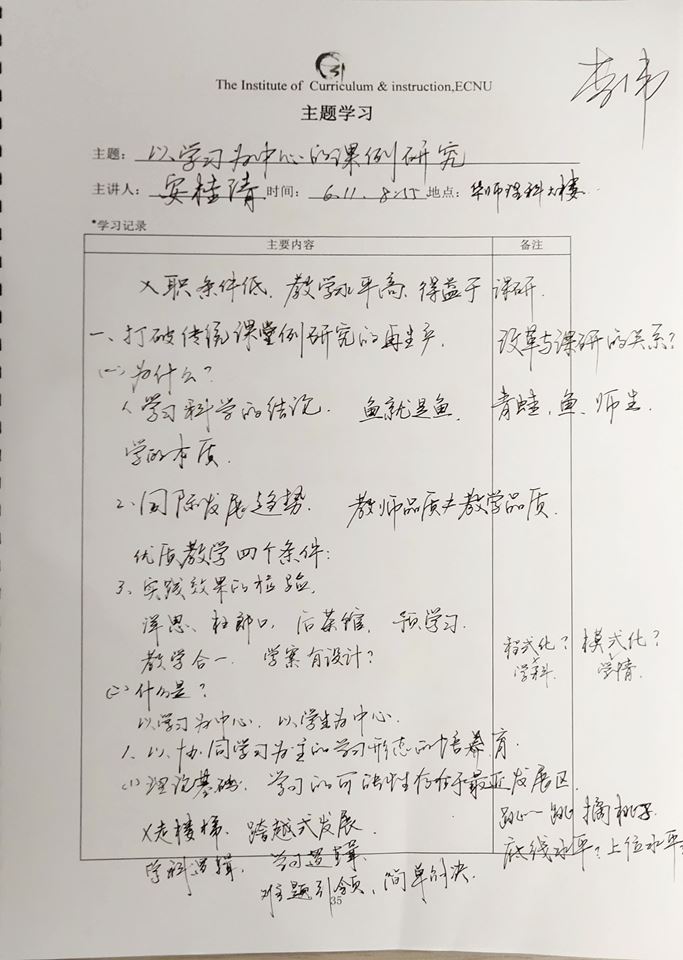 The Institute of Curriculum & instruction,ECNU
李伟
主题学习
主题： 以学习为中心的课例研究
主讲人： 安桂清 时间： 6.11. 8:55 地点： 华师理科大楼
*学习记录
主要内容 备注
入职条件低、教学水平高、得益于课研.
一、打破传统课堂例研究的再生产. 改革与课研的关系?
(一)为什么?
1、学习科学的结论. 鱼就是鱼. 青蛙、鱼、师生.
学的本质.
2、国际发展趋势. 教师品质≠教学品质.
优质教学四个条件:
3、实践效果的检验.
洋思、杜郎口、后茶馆、预学习.
教学合一. 学案有设计? 程式化? 模式化?
学科 学情
(二)什么是?
以学习为中心. 以学生为中心.
1、以协同学习为主的学习形态的培育.
(1)理论基础. 学习的可能性存在于最近发展区.
X走楼梯、跨越式发展. 跳一跳摘桃子
学科逻辑. 学习逻辑. 底线水平; 上位水平
难题引领、简单的决.
35